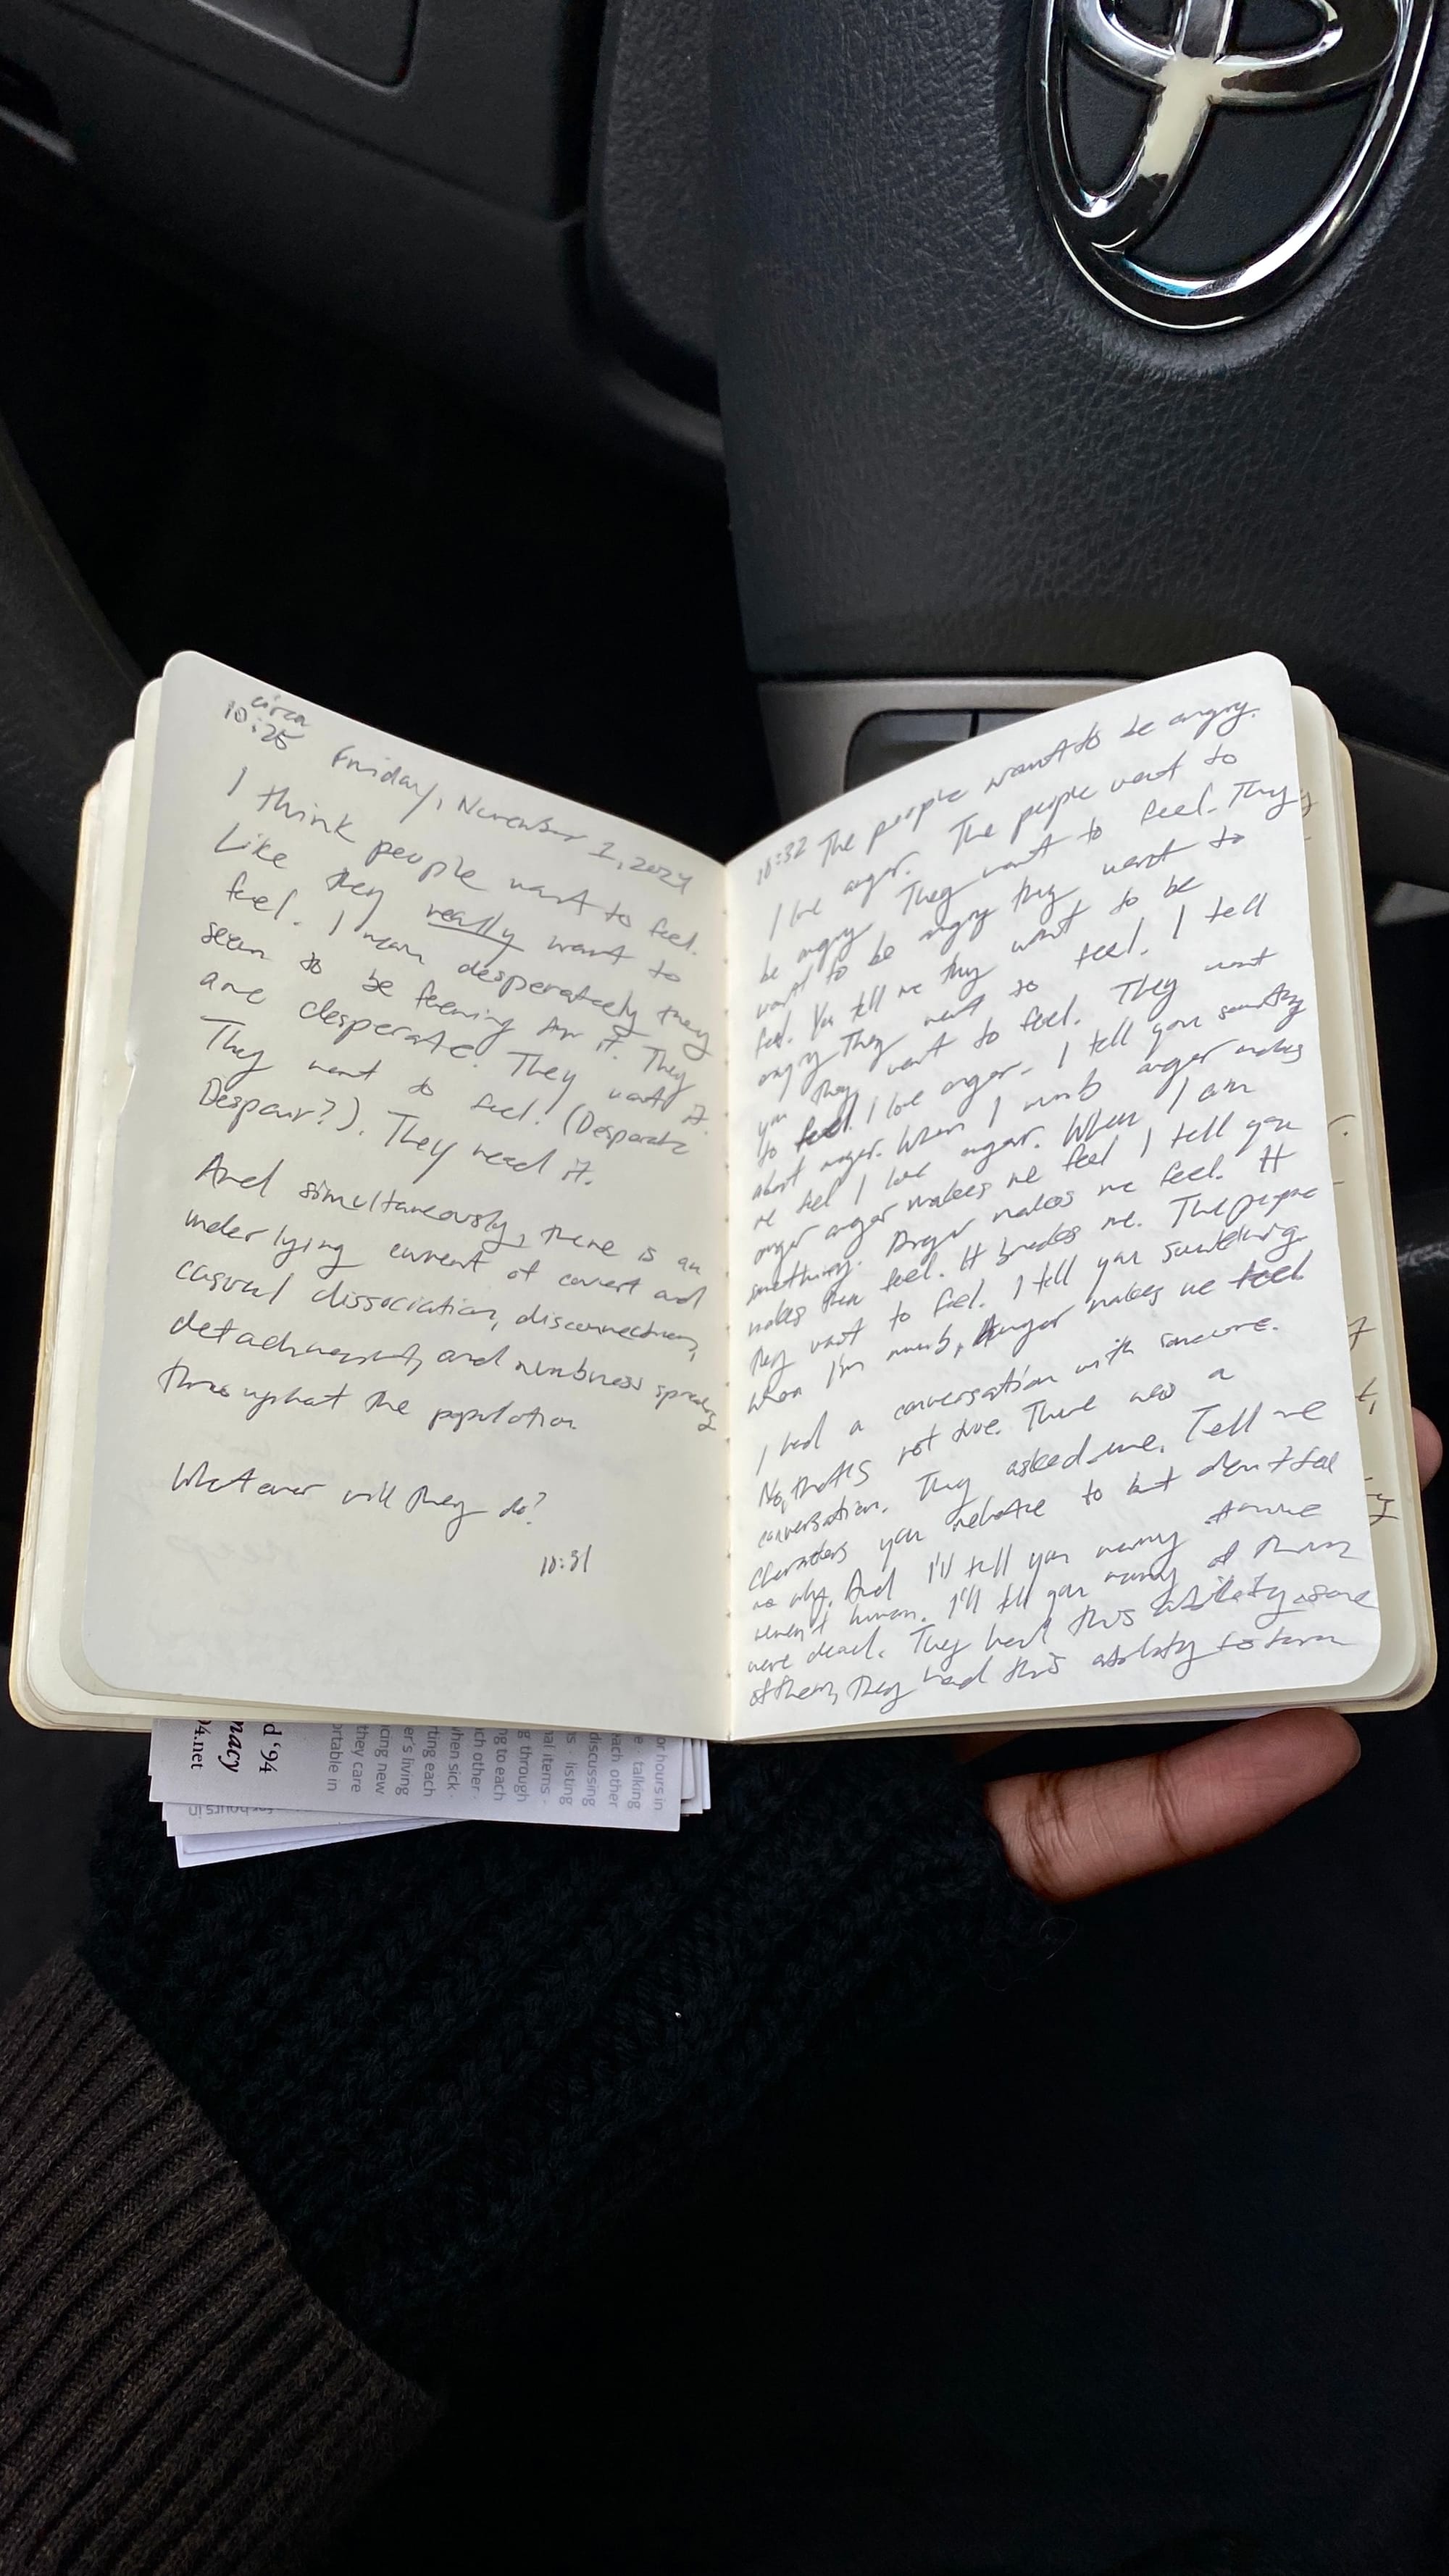 circa
10:25
Friday, November 1, 2024
I think people want to feel.
Like they really want to
feel. I mean desperately they
seem to be feening for it. They
are desperate. They want it.
They want to feel. (Desperate
Despair?). They need it.
And simultaneously, there is an
underlying current of covert and
casual dissociation, disconnection,
detachment, and numbness spreading
throughout the population.
Whatever will they do?
10:31
10:32 The people want to be angry.
I love anger. The people want to
be angry. They want to feel. They
want to be angry they want to
feel. You tell me they want to be
angry they want to feel. I tell
you they want to feel. They want
to feel. I love anger. I tell you something
about anger. When I numb anger makes
me feel I love anger. When I am
anger anger makes me feel I tell you
something. Anger makes me feel. It
makes them feel. It breaks me. The people
they want to feel. I tell you something
when I'm numb, Anger makes me feel.
I had a conversation with someone.
No, that's not true. There was a
conversation. They asked me. Tell me
characters you relate to but don't tell
me why. And I'll tell you many
weren't human. I'll tell you many of them
were dead. They had this ability, some
of them, they had this ability to turn
d '94
nacy
94.net
or hours in
e · talking
each other
discussing
s · listing
nal items ·
g through
ng to each
ch other ·
when sick ·
rting each
er's living
cing new
they care
ortable in
for hours in